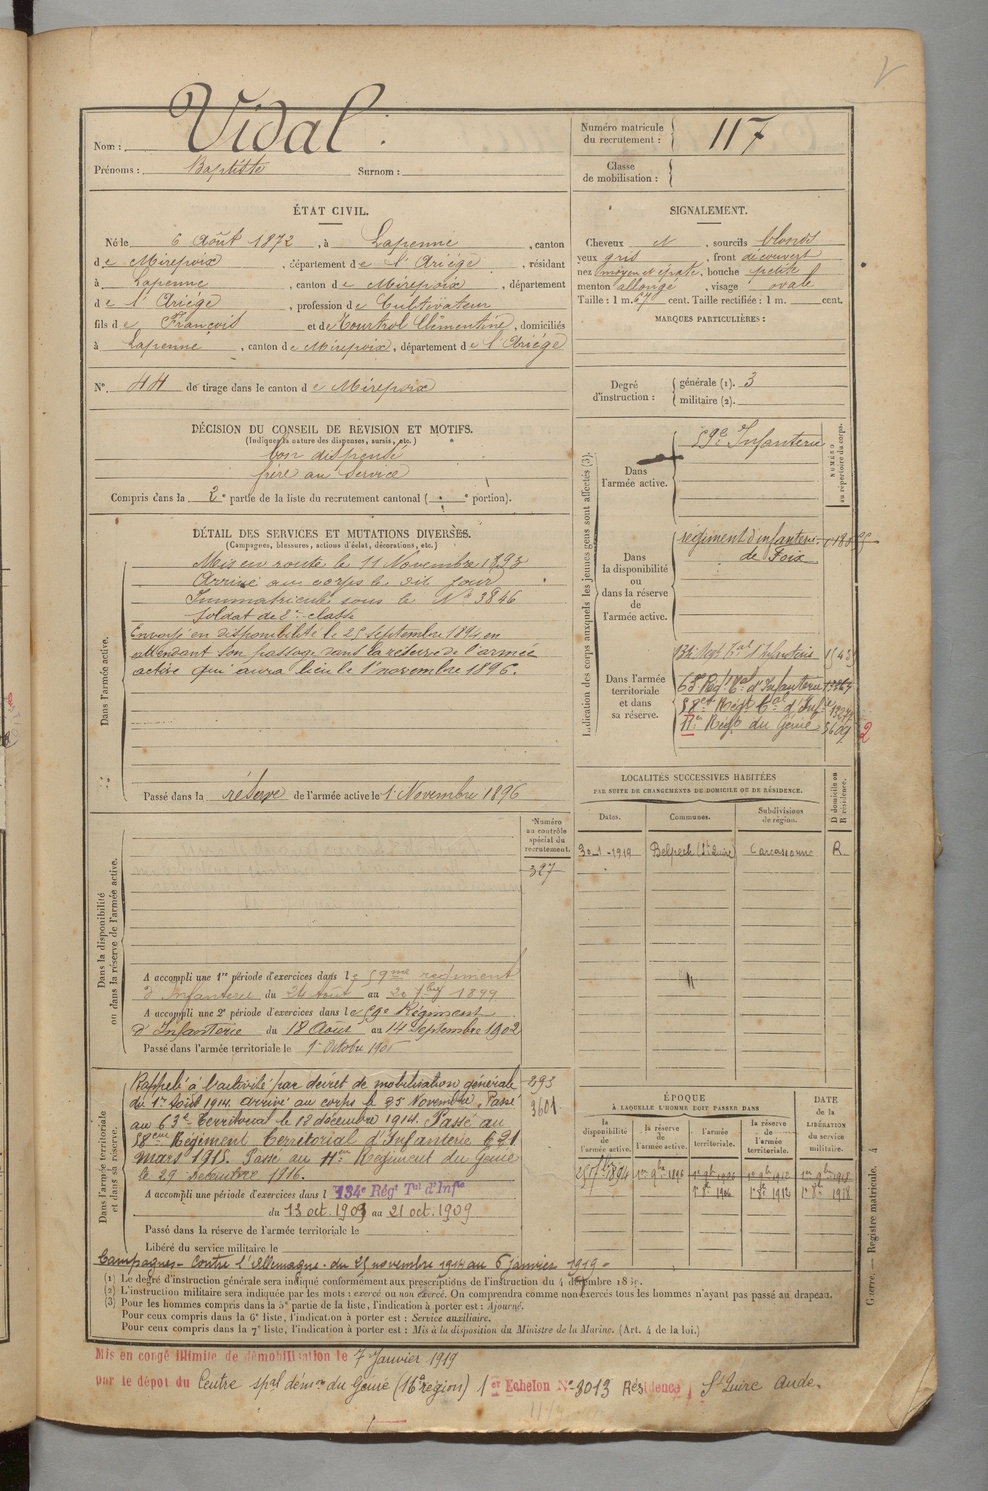 Nom : Vidal
Prénoms : Baptiste Surnom :
Numéro matricule du recrutement : 117
Classe de mobilisation :
ÉTAT CIVIL.
Né le 6 Août 1872, à Lapenne, canton
de Mirepoix, département de l'Ariège, résidant
à Lapenne, canton de Mirepoix, département
de l'Ariège, profession de Cultivateur
fils de François et de Tourtrol Clémentine, domiciliés
à Lapenne, canton de Mirepoix, département de l'Ariège
N° 44 de tirage dans le canton de Mirepoix
SIGNALEMENT.
Cheveux N, sourcils blonds
yeux gris, front découvert
nez moyen et épaté, bouche petite
menton allongé, visage ovale
Taille : 1 m. 67 cent. Taille rectifiée : 1 m. cent.
MARQUES PARTICULIÈRES :
Degré d'instruction : générale (1). 3
militaire (2).
DÉCISION DU CONSEIL DE RÉVISION ET MOTIFS.
(Indiquer la nature des dispenses, sursis, etc.)
bon dispensé
frère au service
Compris dans la 2e partie de la liste du recrutement cantonal ( portion).
DÉTAIL DES SERVICES ET MUTATIONS DIVERSES.
(Campagnes, blessures, actions d'éclat, décorations, etc.)
Dans l'armée active.
Mis en route le 11 Novembre 1893
Arrivé au corps le dit jour
Immatriculé sous le N° 3846
Soldat de 2e classe
Envoyé en disponibilité le 25 septembre 1894 en
attendant son passage dans la réserve de l'armée
active qui aura lieu le 1er novembre 1896.
Passé dans la réserve de l'armée active le 1 Novembre 1896
Indication des corps auxquels les jeunes gens sont affectés (3).
NUMÉRO au répertoire du corps.
Dans l'armée active.
59e Infanterie
Dans la disponibilité ou dans la réserve de l'armée active.
régiment d'infanterie
de Foix
Dans l'armée territoriale et dans sa réserve.
134 Regt Tal d'Infanterie
63e Régt Tal d'Infanterie
58e Régt Tal d'Inf
11e Régt du Génie 3609
2
LOCALITÉS SUCCESSIVES HABITÉES
PAR SUITE DE CHANGEMENTS DE DOMICILE OU DE RÉSIDENCE.
D domicile ou R résidence.
Dates. Communes. Subdivisions de région.
30-1-1919 Belpech (St Quire) Carcassonne R
Numéro au contrôle spécial du recrutement.
327
Dans la disponibilité ou dans la réserve de l'armée active.
A accompli une 1re période d'exercices dans le 59me régiment
d'Infanterie du 24 Août au 20 7bre 1899
A accompli une 2e période d'exercices dans le 59e Régiment
d'Infanterie du 18 Août au 14 Septembre 1902
Passé dans l'armée territoriale le 1er Octobre 1906
Dans l'armée territoriale et dans sa réserve.
Rappelé à l'activité par décret de mobilisation générale
du 1er Août 1914. Arrivé au corps le 25 Novembre. Passé
au 63e Territorial le 12 décembre 1914. Passé au
58ème Régiment Territorial d'Infanterie le 21
mars 1915. Passé au 11ème Régiment du Génie
le 29 Décembre 1916.
293
3601
A accompli une période d'exercices dans l 134e Régt Tal d'Infie
du 13 oct. 1909 au 21 oct. 1909
Passé dans la réserve de l'armée territoriale le
Libéré du service militaire le
Campagnes - Contre l'Allemagne - du 25 novembre 1914 au 6 janvier 1919 -
ÉPOQUE
À LAQUELLE L'HOMME DOIT PASSER DANS
la disponibilité de l'armée active. la réserve de l'armée active. l'armée territoriale. la réserve de l'armée territoriale. DATE de la LIBÉRATION du service militaire.
25 7bre 1894 1er 9bre 1896 1er 9bre 1906 1er 9bre 1912 1er 9bre 1918
1er 8bre 1906 1er 8bre 1912 1er 8bre 1918
(1) Le degré d'instruction générale sera indiqué conformément aux prescriptions de l'instruction du 4 décembre 18
(2) L'instruction militaire sera indiquée par les mots : exercé ou non exercé. On comprendra comme non exercés tous les hommes n'ayant pas passé au drapeau.
(3) Pour les hommes compris dans la 5e partie de la liste, l'indication à porter est : Ajourné.
Pour ceux compris dans la 6e liste, l'indication à porter est : Service auxiliaire.
Pour ceux compris dans la 7e liste, l'indication à porter est : Mis à la disposition du Ministre de la Marine. (Art. 4 de la loi.)
Guerre. — Registre matricule. 4
Mis en congé illimité de démobilisation le 7 Janvier 1919
par le dépôt du Centre spal démon du Génie (16e région) 1er Echelon N° 3013 Résidence St Quirc Aude.